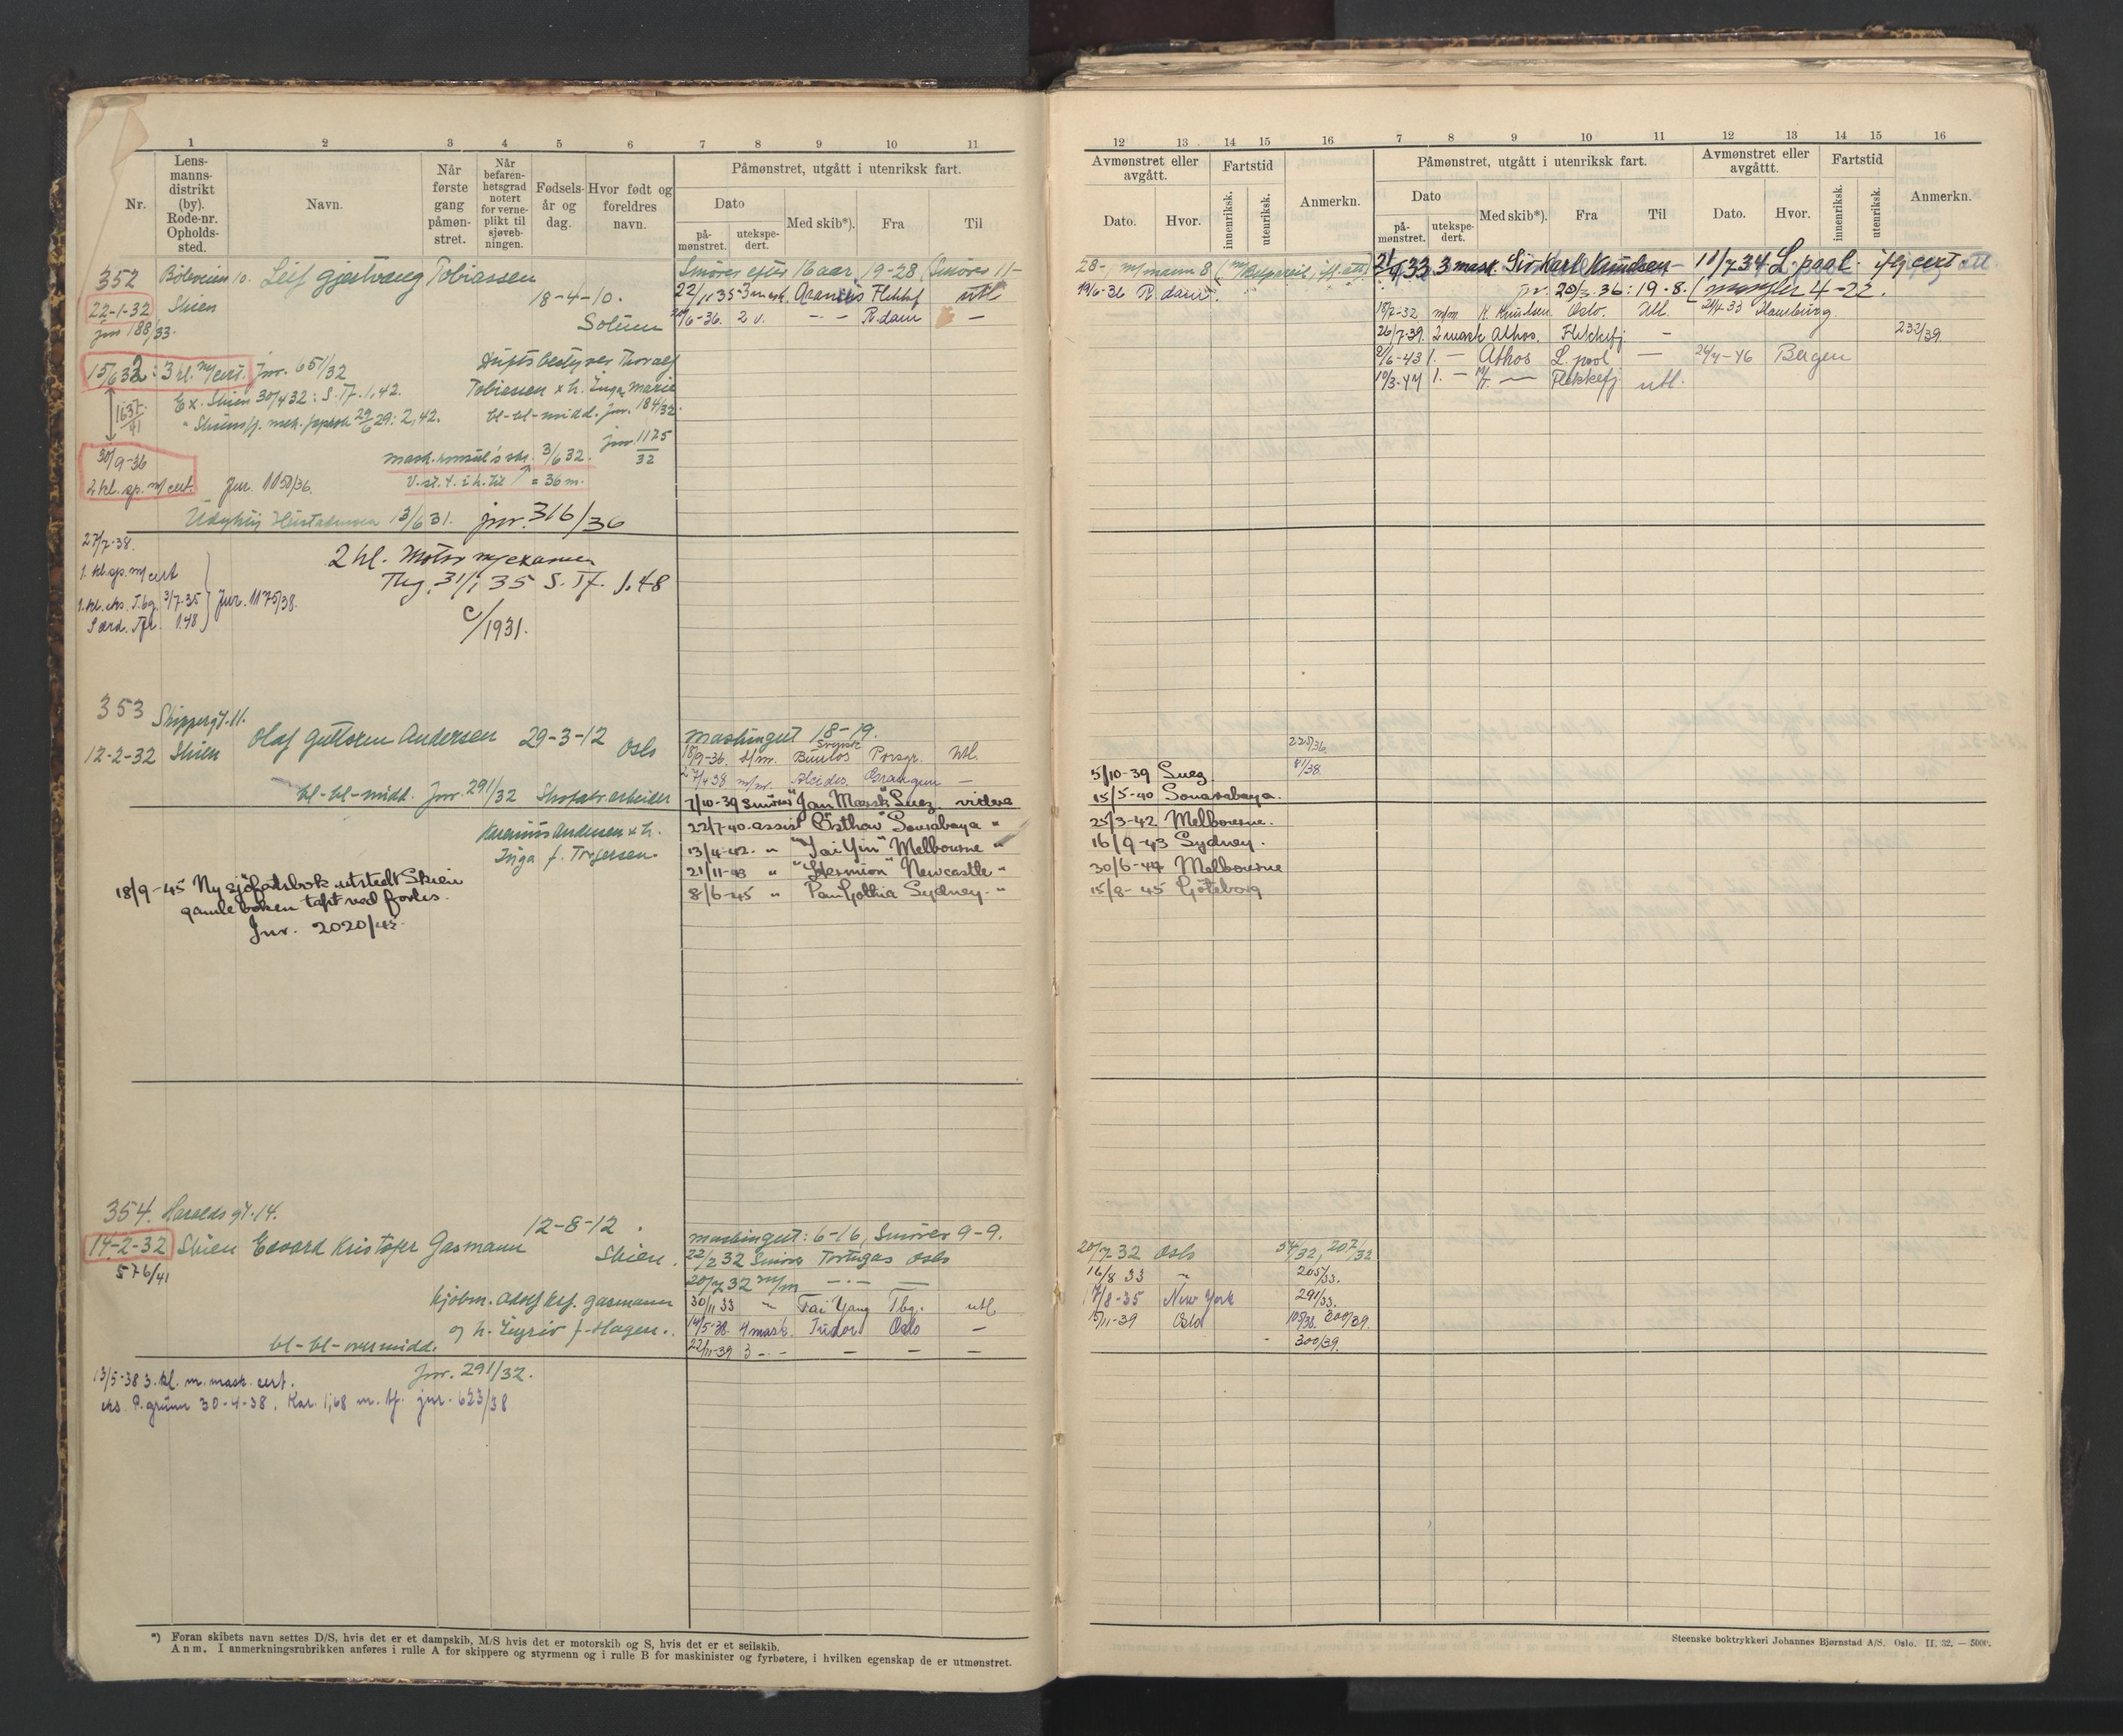 1 2 3 4 5 6 7 8 9 10 11
Nr.
Lens-
manns-
distrikt
(by).
Rode-nr.
Opholds-
sted.
Navn.
Når
første
gang
påmøn-
stret.
Når
befaren-
hetsgrad
notert
for verne-
plikt til
sjøveb-
ningen.
Fødsels-
år og
dag.
Hvor født og
foreldres
navn.
Påmønstret, utgått i utenriksk fart.
Dato
på-
mønstret.
utekspe-
dert.
Med skib*).
Fra
Til
352 Bøleveien 10. Leif Gjestvang Tobiassen
22-1-32 Skien
18-4-10.
Solum
jnr 188/33.
15/6 32: 3 kl. m/cert. Jnr. 651/32
Driftsbestyrer Thoralf
Tobiassen & h. Inga Marie
Ex. Skien 30/4 32: S. Tf. 1,42.
bl-bl-midd. Jnr. 184/32.
1637/41
29/6 29: 2,42.
jnr 1125/32
mask. 3/6 32.
= 36 m.
30/9-36
2 kl. sp. m/cert. Jnr. 1150/36.
13/6 31. jnr. 316/36
27/7-38.
1. kl. sp. m/cert
1. kl. eks. T.bg. 3/7-35 Jnr. 1175/38.
1.48
2 kl. Motor m/examen
Tbg. 31/1 35 S. Tf. 1.48
C/1931.
Smører efter 16 aar 19-28, Smører 11-
22/11 35 3 mask. Flekkf utl
/6-36. 2 v. - - R.dam -
353 Skippergt. 11.
12-2-32 Skien Olaf Guttorm Andersen 29-3-12 Oslo
bl-bl-midd. Jnr. 291/32 Skofabr.arbeider
Andersen & h.
Inga f. Torgersen.
18/9-45 Ny sjøfartsbok utstedt Skien
gamle boken tapt ved forlis.
Jnr. 2020/45.
maskingut 18-19.
18/9-36. Porsgr. Utl.
/4 38 m/m. Alcides. -
7/10-39 smører "Jan Mærsk" Suez. videre
22/7-40. assist "Østhav" Sourabaya "
13/4-42. " "Tai Yin" Melbourne "
21/11-43 " "Hermion" Newcastle "
8/6-45 " Pan Gothia Sydney. "
354. Haralds gt. 14.
14-2-32 Skien Edvard Kristofer Gasmann 12-8-12
Skien.
576/41
Kjøbm. Adolf Gasmann
og h. Ingrid f. Hagen.
bl-bl-overmidd.
Jnr. 291/32.
13/5-38 3. kl. m. mask. cert.
eks. P.grunn 30-4-38. Kar. 1,68 m. tf. jnr. 623/38
maskingut: 6-16, Smører 9-9.
22/2 32 Smører Tortugas Oslo
20/7 32 m/m - - -
30/11 33 " Tai Yang Tbg. utl
14/5-38. 4 mask. Tudor Oslo -
22/11-39 3 - - - - -
*) Foran skibets navn settes D/S, hvis det er et dampskib, M/S hvis det er motorskib og S, hvis det er et seilskib.
Anm. I anmerkningsrubrikken anføres i rulle A for skippere og styrmenn og i rulle B for maskinister og fyrbøtere, i hvilken egenskap de er utmønstret.
12 13 14 15 16 7 8 9 10 11 12 13 14 15 16
Avmønstret eller
avgått.
Dato.
Hvor.
Fartstid
innenriksk.
utenriksk.
Anmerkn.
Påmønstret, utgått i utenriksk fart.
Dato
på-
mønstret.
utekspe-
dert.
Med skib*).
Fra
Til
Avmønstret eller
avgåttt.
Dato.
Hvor.
Fartstid
innenriksk.
utenriksk.
Anmerkn.
28-, m/mann 8
19/6-36 R.dam.
33 3 mask. Siv. Karl Knudsen - 11/7 34 L.pool.
36: 19-8. (mangler 4-22.
18/7-32 m/m K. Knudsen. Oslo. Utl. Hamburg.
26/7-39. 2 mask Athos. Flekkefj - 232/39.
/6-43 1. - Athos L.pool - 24/4-46 Bergen
19/3-47 1. - Flekkefj utl.
225/36.
5/10-39 Suez. 81/38.
15/5-40 Sourabaya.
25/3-42 Melbourne.
16/9-43 Sydney.
30/6-44 Melbourne
15/8-45 Göteborg
20/7-32 Oslo 54/32, 207/32
16/8 33 " 205/33.
17/8-35 New York 291/33.
15/11-39 Oslo 300/39.
300/39.
Steenske boktrykkeri Johannes Bjørnstad A/S. Oslo. II. 32. — 5000.